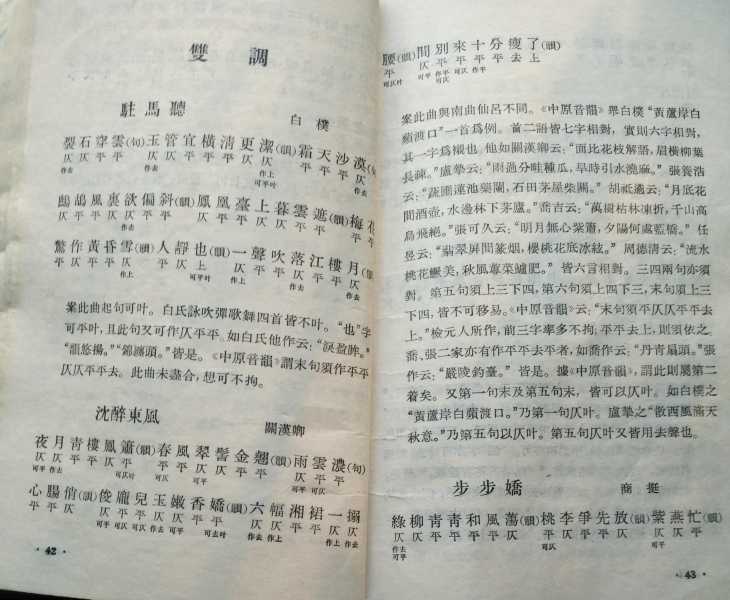 雙調
駐馬聽
白樸
裂石穿雲(句)玉管宜橫清更潔(韻)霜天沙漠(句)
仄仄平平 仄仄平平平仄仄 平平平仄
作去 作上 可平叶
鷓鴣風裏欲偏斜(韻)鳳凰臺上暮雲遮(韻)梅花
驚作黃昏雪(韻)人靜也(韻)一聲吹落江樓月(韻)
案此曲起句可叶。白氏詠吹彈歌舞四首皆不叶。“也”字
可平叶,且此句又可作仄平平。如白氏他作云:“淚盈眸。”
“韻悠揚。”“錦纏頭。”皆是。《中原音韻》謂末句須作平平
仄仄平平去。此曲未盡合,想可不拘。
沈醉東風
關漢卿
夜月青樓鳳簫(韻)春風翠髻金翹(韻)雨雲濃(句)
心腸俏(韻)俊龐兒玉嫩香嬌(韻)六幅湘裙一搦
·42·
腰(韻)間別來十分瘦了(韻)
平 仄平平平平去上
可仄叶 可平 作平 可仄 作平
案此曲與南曲仙呂不同。《中原音韻》舉白樸“黃蘆岸白
蘋渡口”一首爲例。首二語皆七字相對,實則六字相對,
其一字爲襯也。他如關漢卿云:“面比花枝解語,眉橫柳葉
長疎。”盧摯云:“雨過分畦種瓜,旱時引水澆麻。”張養浩
云:“蔬圃蓮池藥闌,石田茅屋柴關。”胡祗遹云:“月底花
間酒壺,水邊林下茅廬。”喬吉云:“萬樹枯林凍折,千山高
鳥飛絕。”張可久云:“明月無心紫簫,夕陽何處藍橋。”任
昱云:“翡翠屏間篆烟,櫻桃花底冰絃。”周德清云:“流水
桃花鱖美,秋風蓴菜鱸肥。”皆六言相對。三四兩句亦須
對。第五句須上三下四,第六句須上四下三,末句須上三
下四,皆不可移易。《中原音韻》云:“末句須平仄仄平平去
上。”檢元人所作,前三字率多不拘;平平去上,則須依之。
喬、張二家亦有作平平去平者,如喬作云:“丹青扇頭。”張
作云:“嚴陵釣臺。”皆是。據《中原音韻》,謂此則屬第二
着矣。又第一句末及第五句末,皆可以仄叶。如白樸之
“黃蘆岸白蘋渡口。”乃第一句仄叶。盧摯之“散西風滿天
秋意。”乃第五句以仄叶。第五句仄叶又皆用去聲也。
步步嬌
商挺
綠柳青青和風蕩(韻)桃李爭先放(韻)紫燕忙(韻)
仄仄平平平平仄 平仄平平仄 仄仄平
·43·